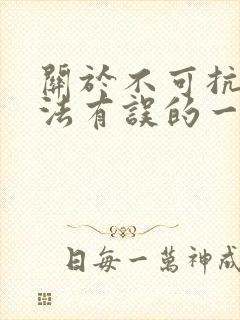 關於不可抗
法有誤的一
日每一萬神成